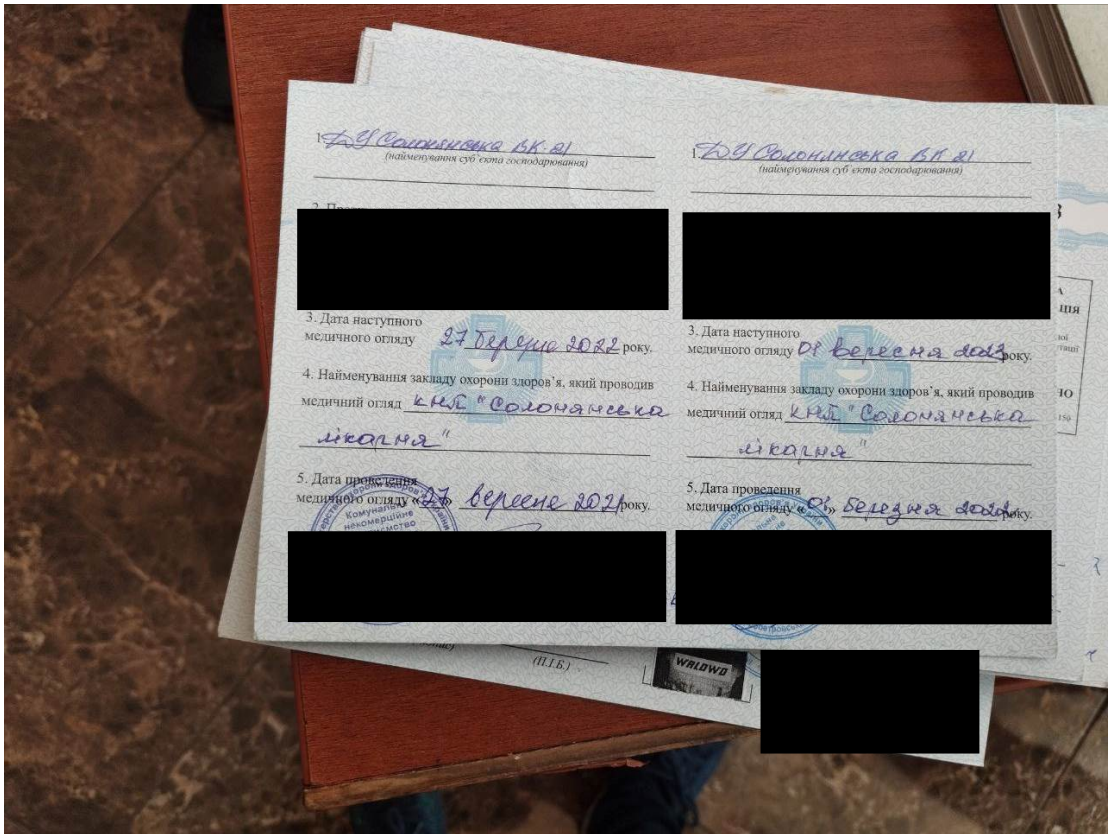 1. ДУ Солонянська ВК-21
(найменування суб'єкта господарювання)
3. Дата наступного
медичного огляду 27 березня 2022 року.
4. Найменування закладу охорони здоров'я, який проводив
медичний огляд КНП "Солонянська
лікарня"
5. Дата проведення
медичного огляду «27» вересня 2021 року.
Комунальне
некомерційне
1. ДУ Солонянська ВК 21
(найменування суб'єкта господарювання)
3. Дата наступного
медичного огляду 01 вересня року.
4. Найменування закладу охорони здоров'я, який проводив
медичний огляд КНП "Солонянська
лікарня"
5. Дата проведення
медичного огляду «01» березня року.
(П.І.Б.)
WALOWO